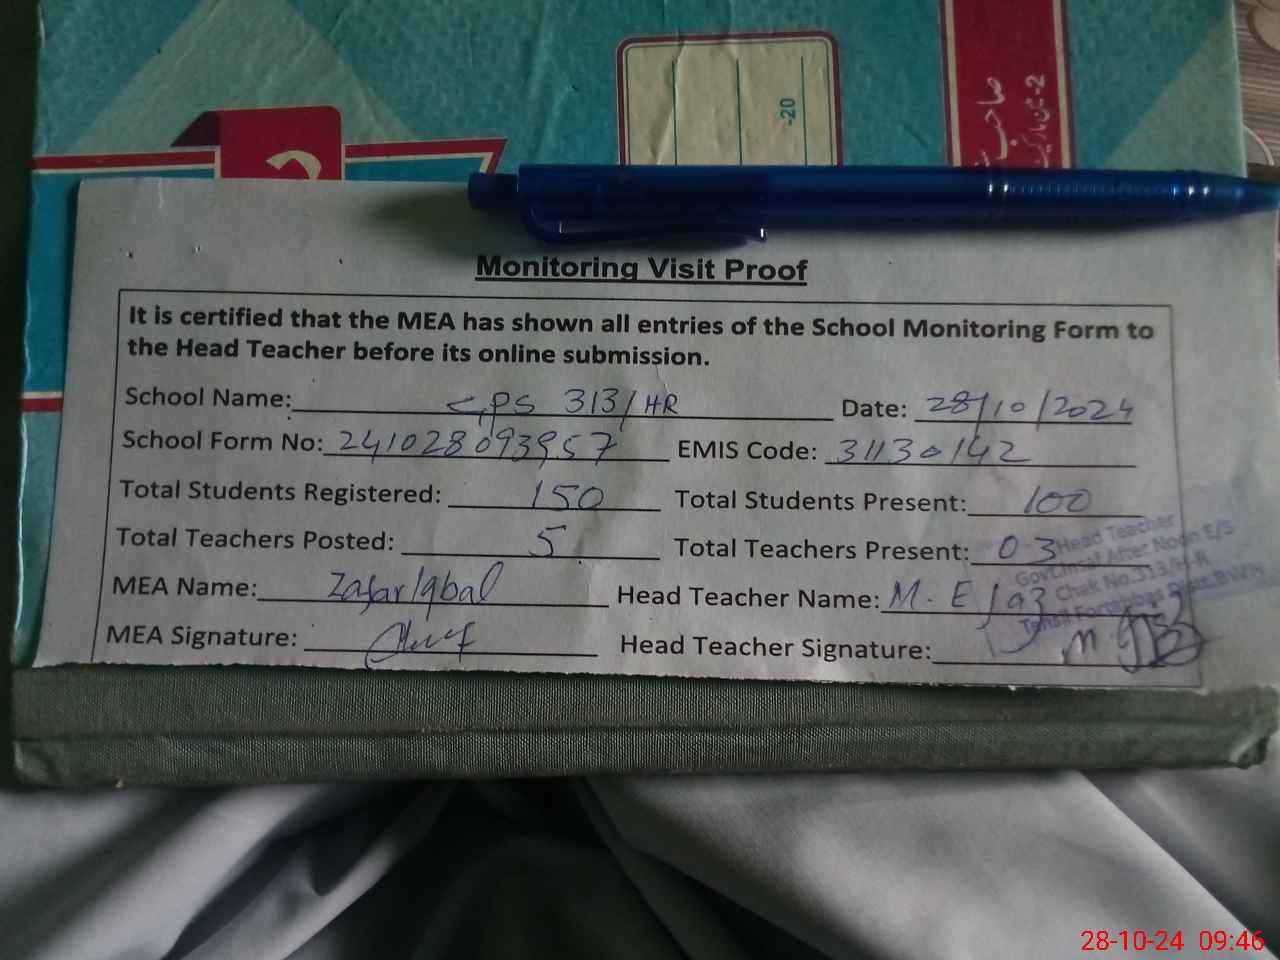 -20
صاحب
Monitoring Visit Proof
It is certified that the MEA has shown all entries of the School Monitoring Form to
the Head Teacher before its online submission.
School Name: GPS 313/HR Date: 28/10/2024
School Form No: 241028093957 EMIS Code: 31130142
Total Students Registered: 150 Total Students Present: 100
Total Teachers Posted: 5 Total Teachers Present: 03
MEA Name: Zafar Iqbal Head Teacher Name: M. Ejaz
MEA Signature: Head Teacher Signature:
Head Teacher
Govt. Insaf After Noon E/S
Chak No.313/H-R
Tehsil Fortabbas Distt.BWN
28-10-24 09:46